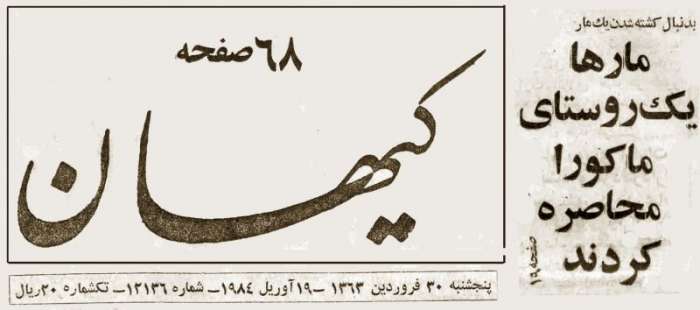 ۶۸ صفحه
کیهان
پنجشنبه ۳۰ فروردین ۱۳۶۳ – ۱۹ آوریل ۱۹۸۴ – شماره ۱۲۱۳۶ – تکشماره ۲۰ ریال
بدنبال کشته شدن یك مار
مارها
یك روستای
ماکو را
محاصره
کردند
صفحه ۱۹